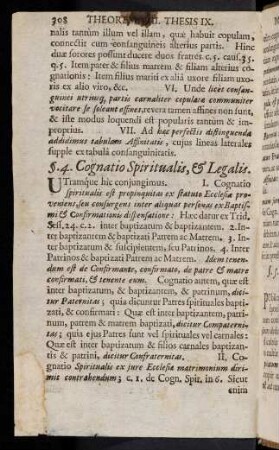 308 THEORE VIII. THESIS IX.
nalis tantùm illum vel illam, quæ habuit copulam,
connectit cum consanguineis alterius partis. Hinc
duæ sorores possunt ducere duos fratres. c. 5. caus. 35.
q. 5. Item pater & filius matrem & filiam alterius co-
gnationis: Item filius mariti ex aliâ uxore filiam uxo-
ris ex alio viro, &c. VI. Unde licèt consan-
guinei utriusq; partis carnaliter copulatæ communiter
vocitare se soleant affines, revera tamen affines non sunt,
& iste modus loquendi est popularis tantùm & im-
proprius. VII. Ad hæc perfectiùs distinguenda
addidimus tabulam Affinitatis, cujus lineas laterales
supple ex tabula consanguinitatis.
§. 4. Cognatio Spiritualis, & Legalis.
UTramque hic conjungimus. I. Cognatio
spiritualis est propinquitas ex statuto Ecclesiæ pro-
veniens, seu consurgens inter aliquas personas ex Baptis-
mi & Confirmationis dispensatione: Hæc datur ex Trid.
Sess. 24. c. 2. inter baptizatum & baptizantem. 2. Inter
inter baptizantem & baptizati Patrem ac Matrem. 3. In-
ter baptizatum & suscipientem, seu Patrinos. 4. Inter
Patrinos & baptizati Patrem ac Matrem. Idem tenen-
dum est de Confirmante, confirmato, de patre & matre
confirmati, & tenente eum. Cognatio autem, quæ est
inter baptizantem, & baptizatum, & patrinum, dici-
tur Paternitas; quia dicuntur Patres spirituales bapti-
zati, & confirmati: Quæ est inter baptizantem, patri-
num, patrem & matrem baptizati, dicitur Compaterni-
tas; quia ejus Patres sunt vel spirituales vel carnales:
Quæ est inter baptizatum & filios carnales baptizan-
tis & patrini, dicitur Confraternitas. II. Co-
gnatio Spiritualis ex jure Ecclesiæ matrimonium diri-
mit contrahendum; c. 1. de Cogn. Spir. in 6. Sicut
enim